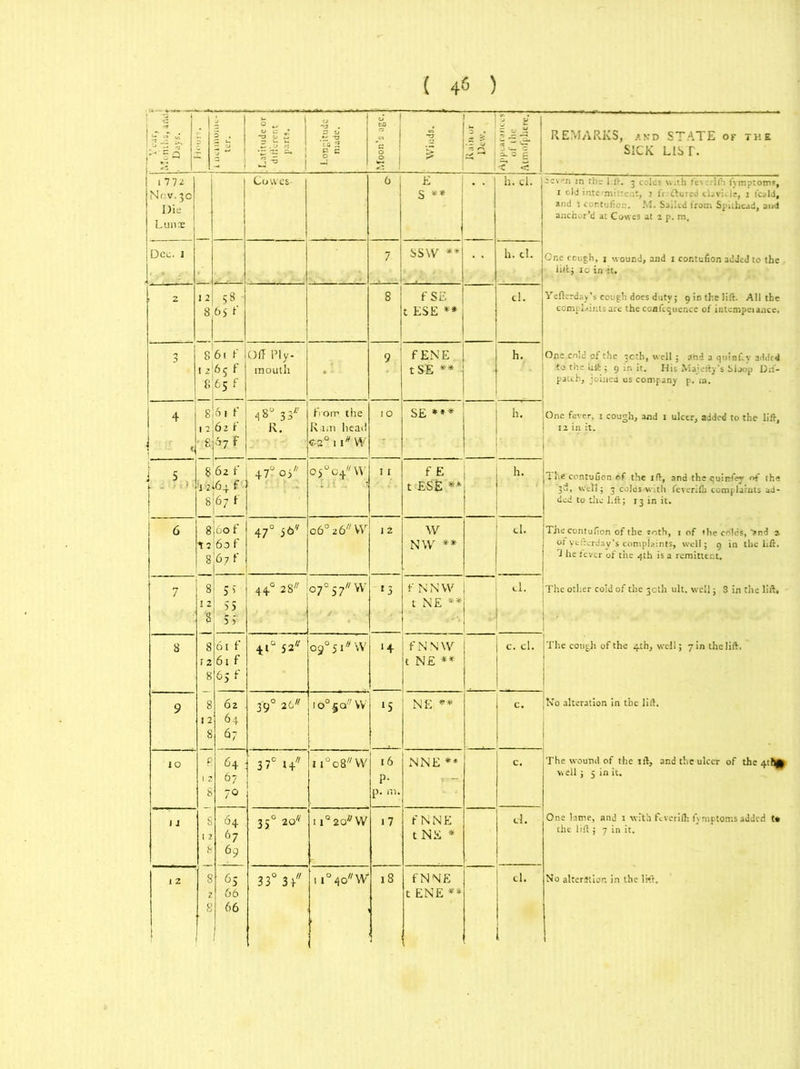 ( 46 )
Year, Months, and Days. | Hours. | Thermometer. | Latitude or different parts. | Longitude made. | Moon's age. | Winds. | Rain or Dew. | Appearances of the Atmoſphere. | REMARKS, AND STATE OF THE SICK LIST.
1772 Nov. 30 Die Lunæ | Cowes | 6 | E S ** | . . | h. cl. | Seven in the liſt. 3 colds with feveriſh ſymptoms,
1 old intermittent, 1 fractured clavicle, 1 ſcald,
and 1 contuſion. M. Sailed from Spithead, and
anchor'd at Cowes at 2 p. m.
Dec. 1 | 7 | SSW ** | . . | h. cl. | One cough, 1 wound, and 1 contuſion added to the
liſt; 10 in it.
2 | 12 58 | 8 | f SE | cl. | Yeſterday's cough does duty; 9 in the liſt. All the
8 65 f | t ESE ** | complaints are the conſequence of intemperance.
3 | 8 61 f | Off Plymouth | 9 | f ENE | h. | One cold of the 30th, well; and a quinſey added
12 65 f | t SE ** | to the liſt; 9 in it. His Majeſty's Sloop Diſ-
8 65 f | patch, joined us company p. m.
4 | 8 61 f | 48° 33″ R. | from the Ram head 02° 11″ W | 10 | SE *** | h. | One fever, 1 cough, and 1 ulcer, added to the liſt,
12 62 f | 12 in it.
8 67 f
5 | 8 62 f | 47° 05″ | 05° 04″ W | 11 | f E | h. | The contuſion of the 1ſt, and the quinſey of the
12 64 f | t ESE ** | 3d, well; 3 colds with feveriſh complaints ad-
8 67 f | ded to the liſt; 13 in it.
6 | 8 60 f | 47° 56″ | 06° 26″ W | 12 | W | cl. | The contuſion of the 30th, 1 of the colds, and 2
12 63 f | NW ** | of yeſterday's complaints, well; 9 in the liſt.
8 67 f | The fever of the 4th is a remittent.
7 | 8 55 | 44° 28″ | 07° 57″ W | 13 | f NNW | cl. | The other cold of the 30th ult. well; 8 in the liſt.
12 55 | t NE **
8 55
8 | 8 61 f | 41° 52″ | 09° 51″ W | 14 | f NNW | c. cl. | The cough of the 4th, well; 7 in the liſt.
12 61 f | t NE **
8 65 f
9 | 8 62 | 39° 26″ | 10° 50″ W | 15 | NE ** | c. | No alteration in the liſt.
12 64
8 67
10 | 8 64 | 37° 14″ | 11° 08″ W | 16 | NNE ** | c. | The wound of the 1ſt, and the ulcer of the 4th
12 67 | p. | well; 5 in it.
8 70 | p. m.
11 | 8 64 | 35° 20″ | 11° 20″ W | 17 | f NNE | cl. | One lame, and 1 with feveriſh ſymptoms added to
12 67 | t NE * | the liſt; 7 in it.
8 69
12 | 8 65 | 33° 34″ | 11° 40″ W | 18 | f NNE | cl. | No alteration in the liſt.
2 66 | t ENE **
8 66